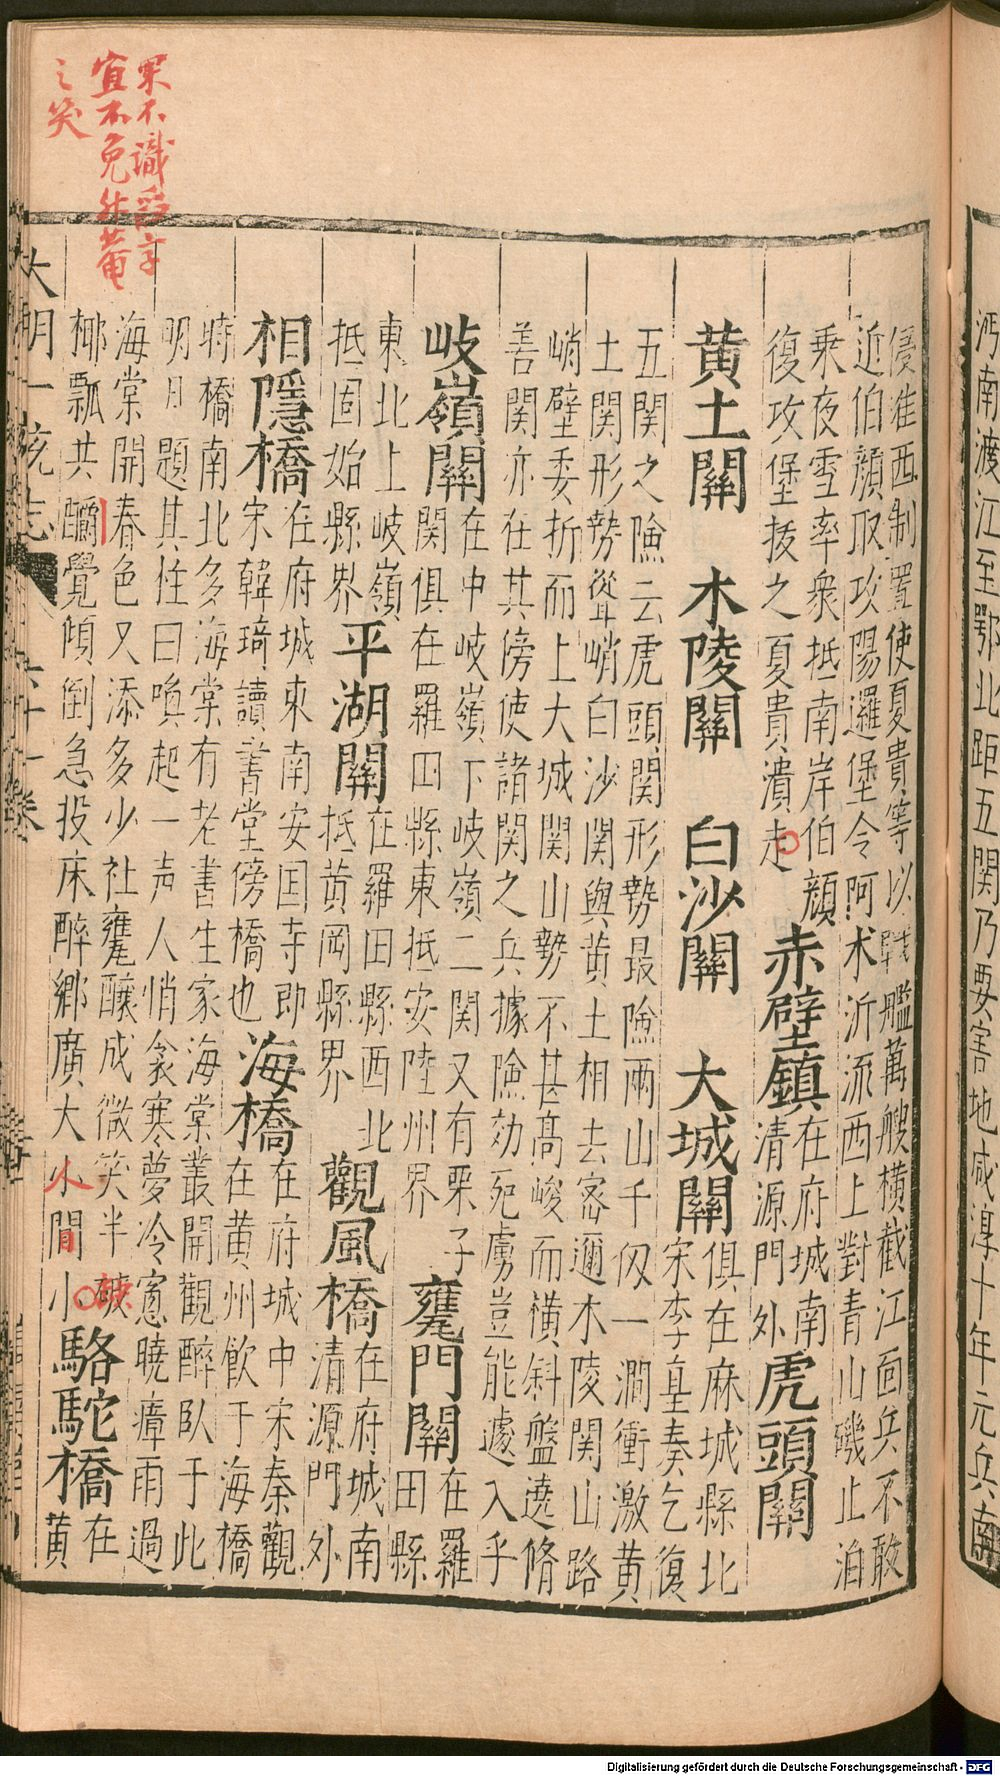 沔南渡江至鄂北距五関乃要害地咸淳十年元兵南
侵淮西制置使夏貴等以戰艦萬艘橫截江面兵不敢
近伯顏取攻陽邏堡令阿术泝流西上對青山磯止泊
乘夜雪率衆抵南岸伯顏
復攻堡拔之夏貴潰走
赤壁鎮
在府城南
清源門外
虎頭關
黄土關 木陵關 白沙關 大城關
俱在麻城縣北
宋李皇奏乞復
五関之險云虎頭関形勢最險兩山千仭一澗衝激黄
土関形勢聳峭白沙関與黄土相去密邇木陵関山路
峭壁委折而上大城関山勢不甚高峻而橫斜盤遶脩
善関亦在其傍使諸関之兵據險効死虜豈能遽入乎
岐嶺關
在中岐嶺下岐嶺二関又有栗子
関俱在羅田縣東抵安陸州界
甕門關
在羅
田縣
東北上岐嶺
抵固始縣界
平湖關
在羅田縣西北
抵黄岡縣界
觀風橋
在府城南
清源門外
相隱橋
在府城東南安国寺即
宋韓琦讀書堂傍橋也
海橋
在府城中宋秦觀
在黄州飲于海橋
時橋南北多海棠有老書生家海棠叢開觀醉臥于此
明日題其柱曰喚起一声人悄衾寒夢冷窻曉瘴雨過
海棠開春色又添多少社甕釀成微笑半破
椰瓢共釂覺傾倒急投床醉鄉廣大人間小
駱駝橋
在
黄
大明一統志 六十一卷
果不識字
宜不免升菴
之笑
人
間
Digitalisierung gefördert durch die Deutsche Forschungsgemeinschaft - DFG